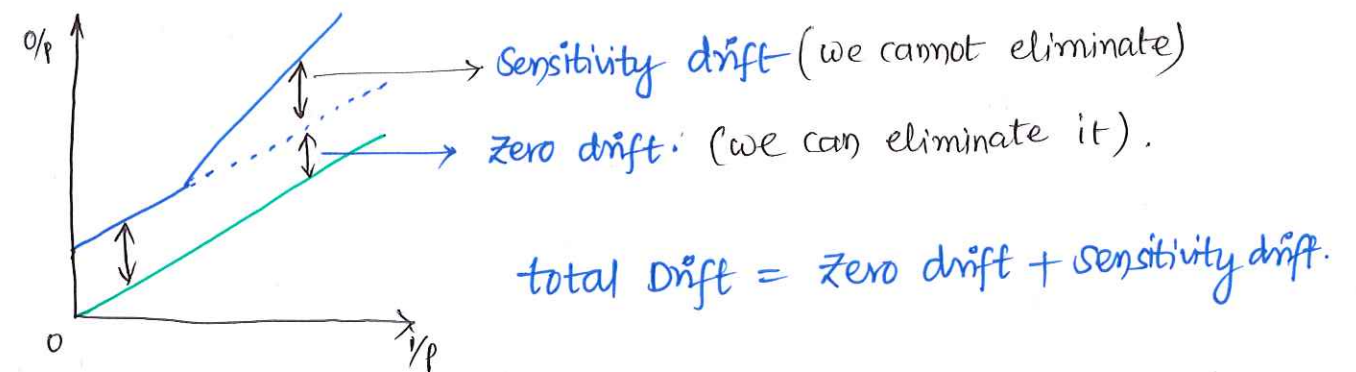 O/p
Sensitivity drift (we cannot eliminate)
Zero drift. (we can eliminate it).
total Drift = Zero drift + Sensitivity drift.
0
i/p